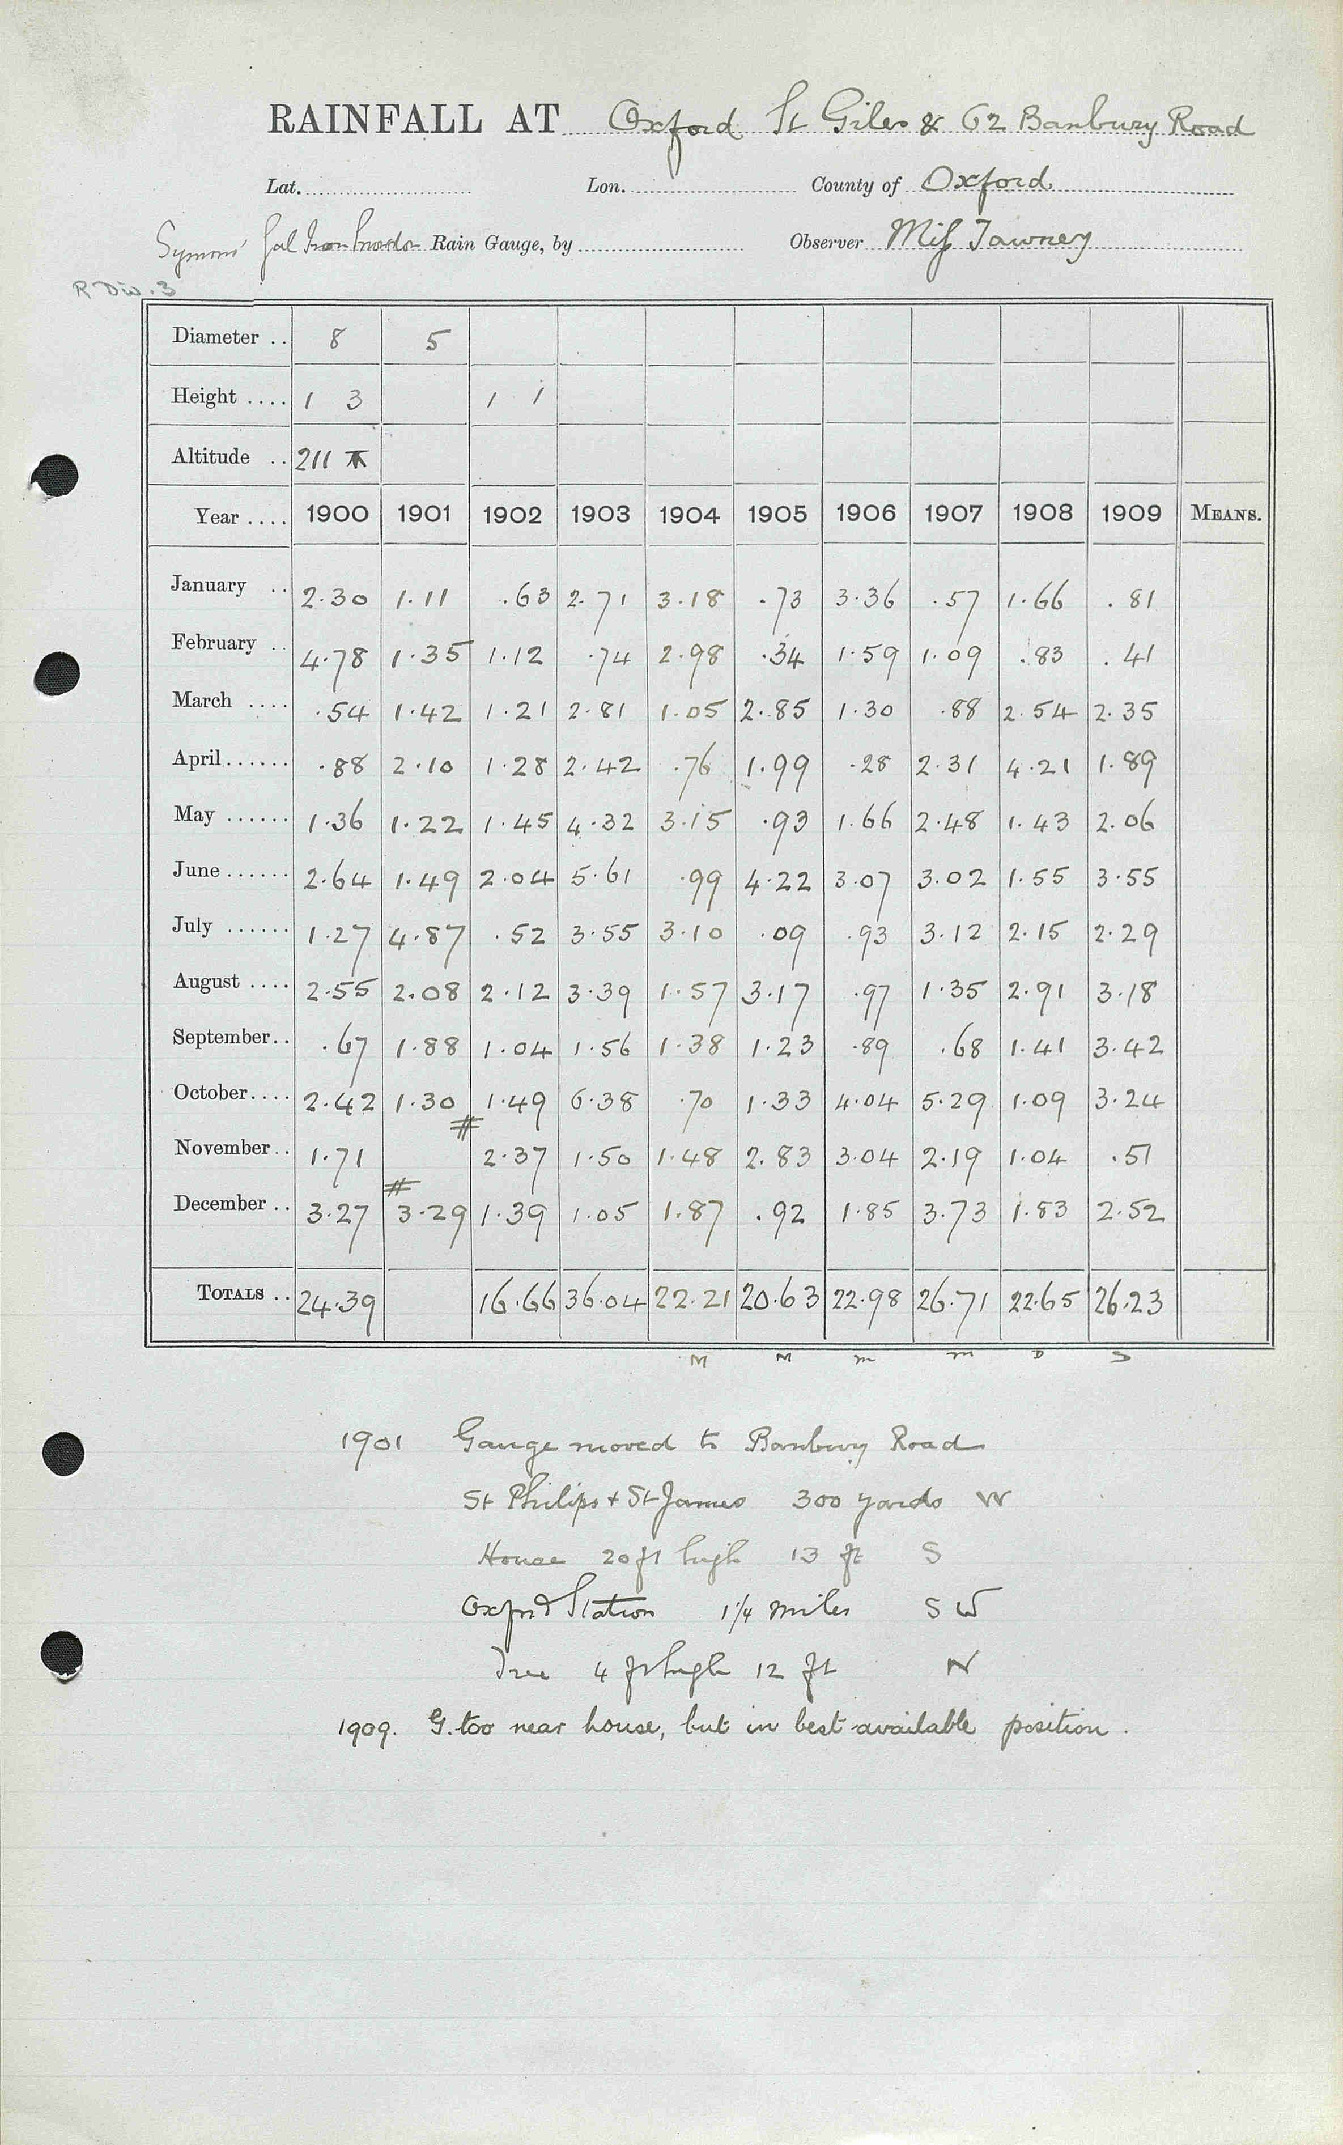 RAINFALL AT Oxford St Giles & 62 Banbury Road
Lat. Lon. County of Oxford
Symons' Gal Iron Rain Gauge, by Observer Miss Tawney
R Div. 3
Diameter .. 8 5
Height .... 1 3 1 1
Altitude .. 211
Year .... 1900 1901 1902 1903 1904 1905 1906 1907 1908 1909 MEANS.
January .. 2.30 1.11 .63 2.71 3.18 .73 3.36 .57 1.66 .81
February .. 4.78 1.35 1.12 .74 2.98 .34 1.59 1.09 .83 .41
March .... .54 1.42 1.21 2.81 1.05 2.85 1.30 .88 2.54 2.35
April...... .88 2.10 1.28 2.42 .76 1.99 .28 2.31 4.21 1.89
May ...... 1.36 1.22 1.45 4.32 3.15 .93 1.66 2.48 1.43 2.06
June ...... 2.64 1.49 2.04 5.61 .99 4.22 3.07 3.02 1.55 3.55
July ...... 1.27 4.87 .52 3.55 3.10 .09 .93 3.12 2.15 2.29
August .... 2.55 2.08 2.12 3.39 1.57 3.17 .97 1.35 2.91 3.18
September.. .67 1.88 1.04 1.56 1.38 1.23 .89 .68 1.41 3.42
October.... 2.42 1.30 1.49 6.38 .70 1.33 4.04 5.29 1.09 3.24
#
November.. 1.71 2.37 1.50 1.48 2.83 3.04 2.19 1.04 .51
#
December .. 3.27 3.29 1.39 1.05 1.87 .92 1.85 3.73 1.83 2.52
TOTALS .. 24.39 16.66 36.04 22.21 20.63 22.98 26.71 22.65 26.23
M M m m D S
1901 Gauge moved to Banbury Road
St Philips + St James 300 yards W
House 20 ft high 13 ft S
Oxford Station 1 1/4 miles S W
Tree 4 ft high 12 ft N
1909. G. too near house, but in best available position.